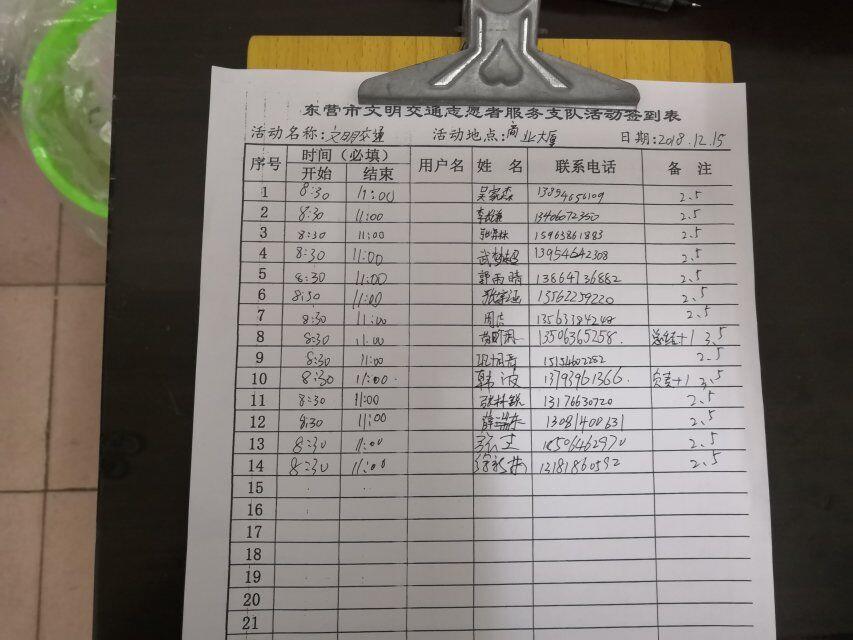 东营市文明交通志愿者服务支队活动签到表
活动名称:文明交通 活动地点:商业大厦 日期:2018.12.15
序号 时间（必填） 用户名 姓 名 联系电话 备 注
开始 结束
1 8:30 11:00 吴家森 13854656109 2.5
2 8:30 11:00 13406072350 2.5
3 8:30 11:00 15963861883 2.5
4 8:30 11:00 13954642308 2.5
5 8:30 11:00 郭雨晴 13864736882 2.5
6 8:30 11:00 张家涵 13562259220 2.5
7 8:30 11:00 周 13563384248 2.5
8 8:30 11:00 13506365258. 总结+1 3.5
9 8:30 11:00 15154602282 2.5
10 8:30 11:00. 韩波 13793961366. 负责+1 3.5
11 8:30 11:00 张林锐 13176630720 2.5
12 8:30 11:00 薛 13081400631 2.5
13 8:30 11:00 张 2.5
14 8:30 11:00 13181860592 2.5
15
16
17
18
19
20
21